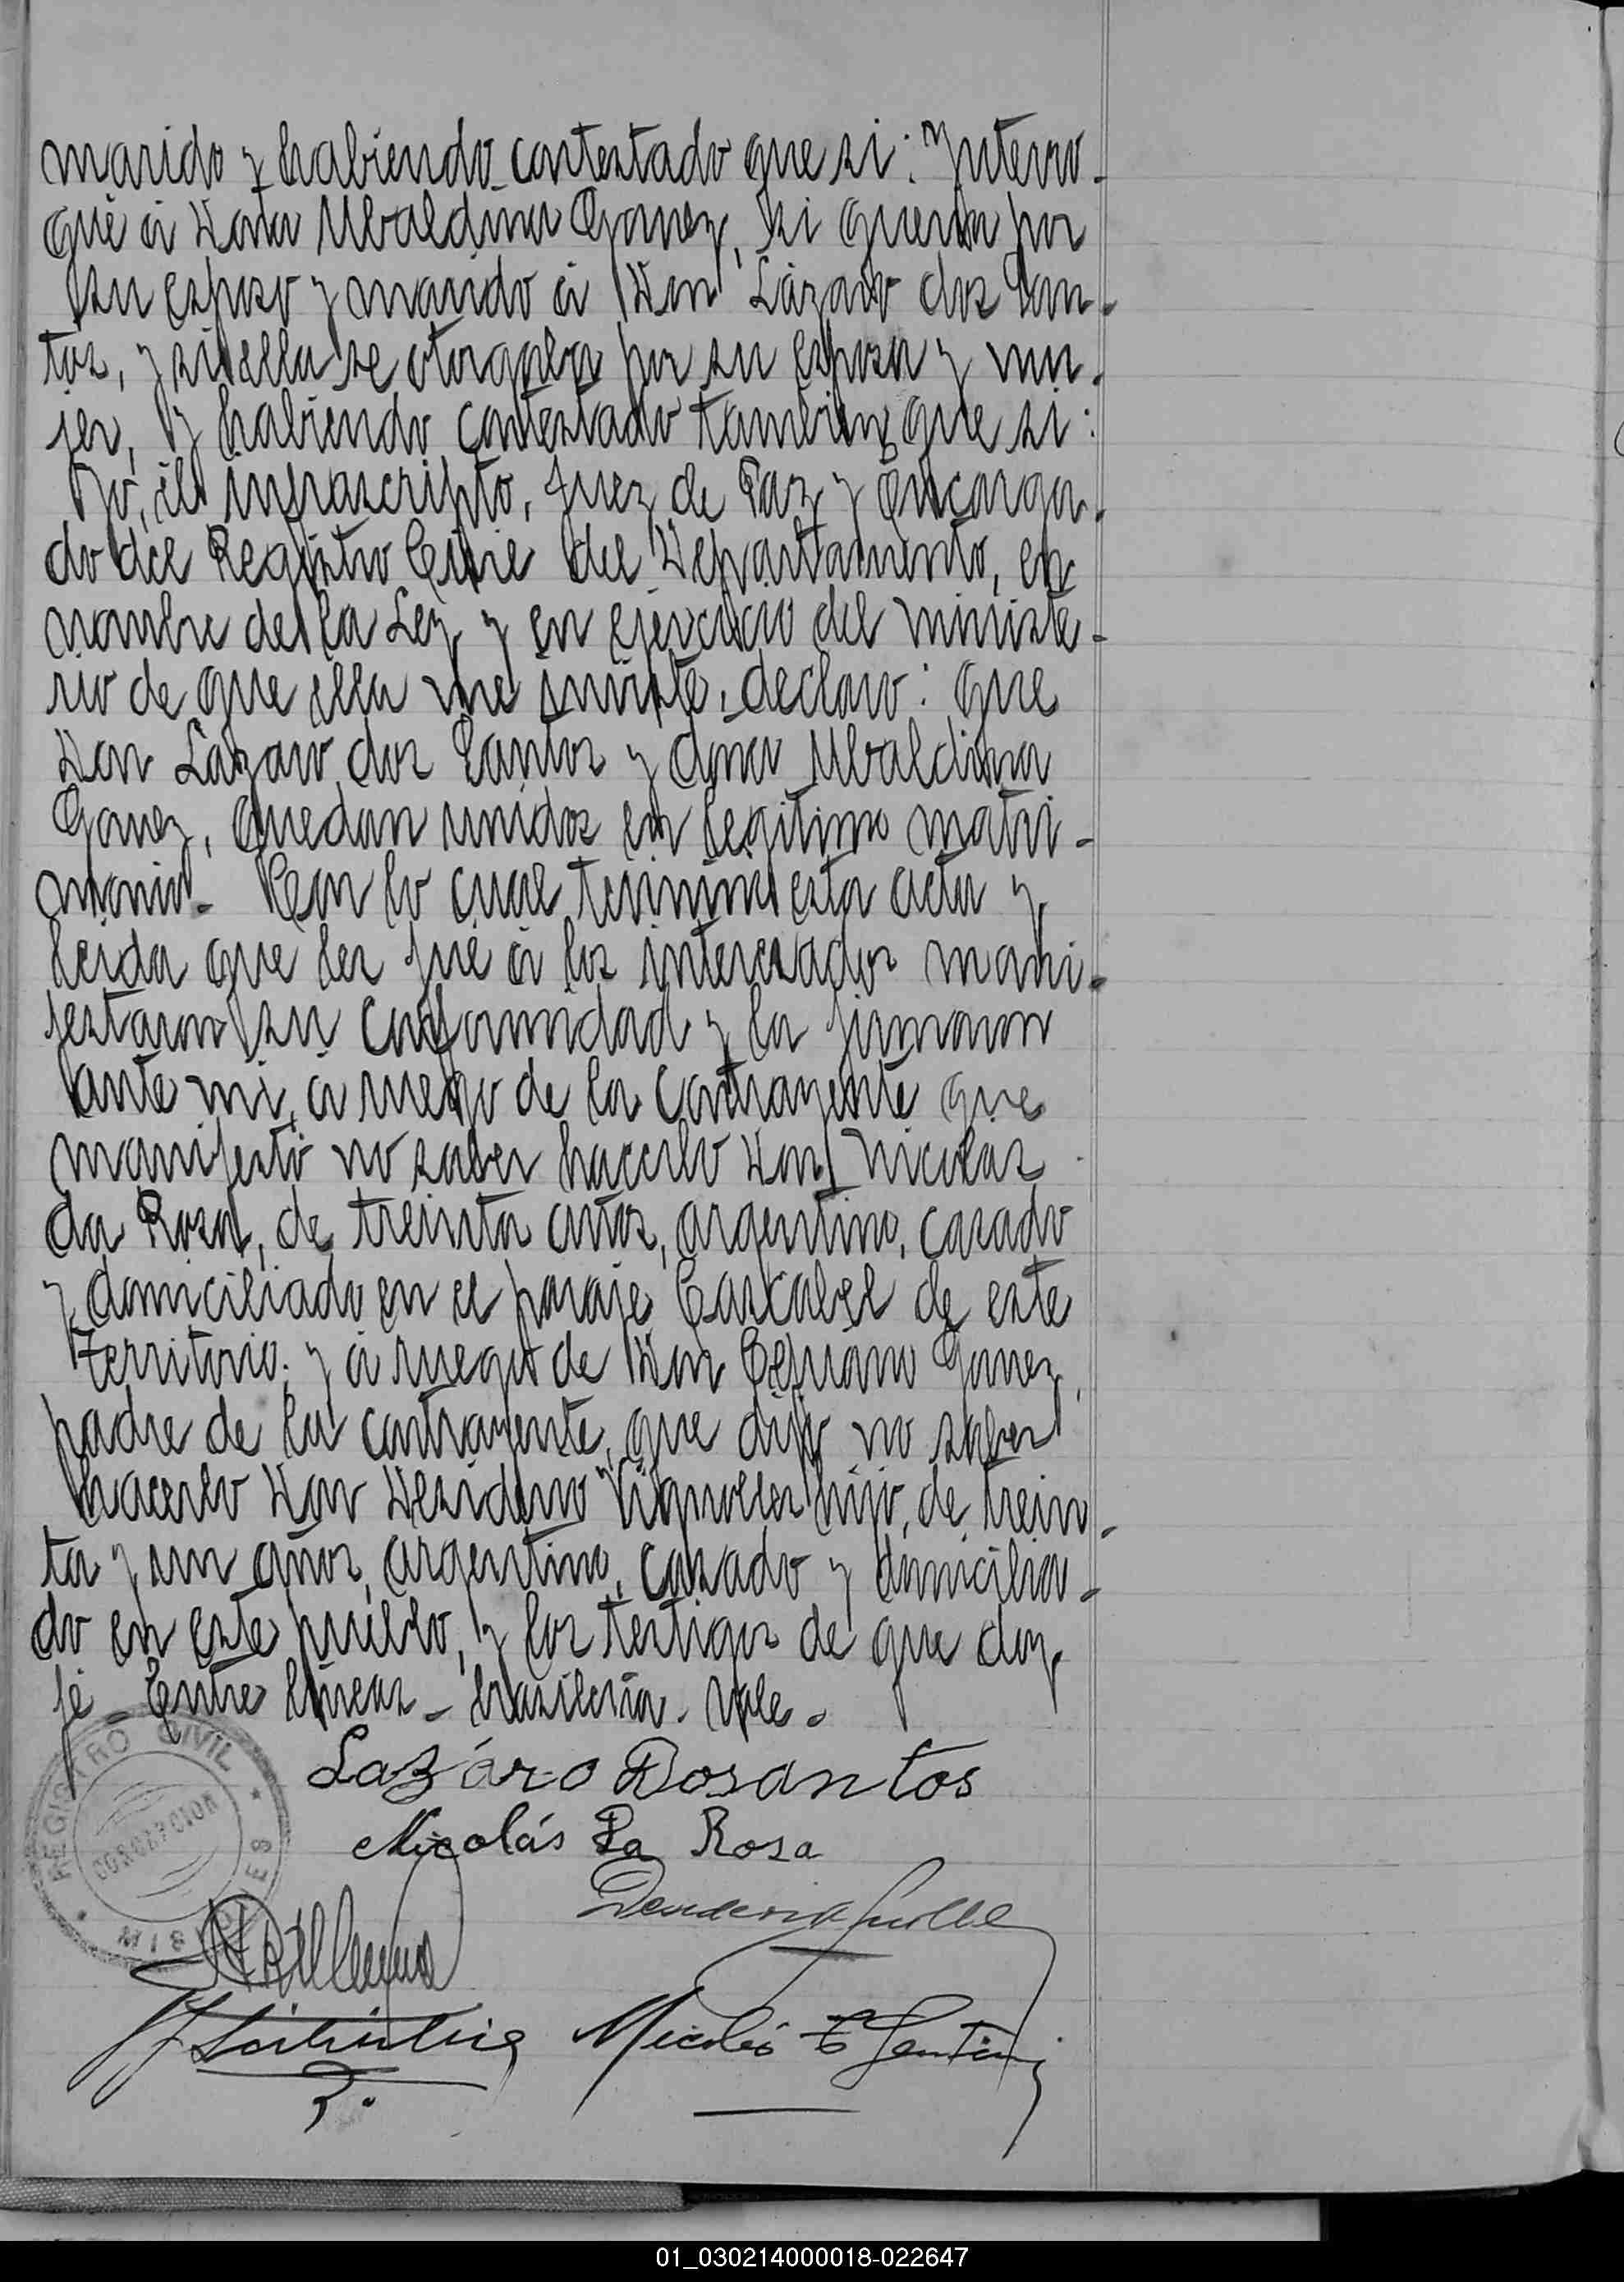 marido y habiendo contestado que si: Interro-
gué á Dona Ubaldina Gomez, si queria por
su esposo y marido á Don Lázaro dos San-
tos, y si ella se otorgaba por su esposa y mu-
jer, y habiendo contestado tambien que si:
Yo, el infrascripto, Juez de Paz y Encarga-
do del Registro Civil del Departamento, en
nombre de la Ley y en ejercicio del ministe-
rio de que ella me inviste, declaro: que
Don Lázaro dos Santos y dona Ubaldina
Gomez, quedan unidos en legitimo matri-
monio.- Con lo cual termina esta acta y
leida que les fué á los interesados mani-
festaron su conformidad y la firmaron
ante mi, á ruego de la contrayente que
manifestó no saber hacerlo Don Nicolas
da Rosa, de treinta años, argentino, casado
y domiciliado en el paraje Cascabel de este
Territorio; y á ruego de Don Cipriano Gomez,
padre de la contrayente, que dijo no saber
hacerlo Don Desiderio hijo, de trein-
ta y un años, argentino, casado y domicilia-
do en este pueblo, y los testigos de que doy
fé - Entre lineas - brasileña - Vale -
Lazáro Dosantos
Nicolás Da Rosa
REGISTRO CIVIL
MISIONES
Nicolás
01_030214000018-022647